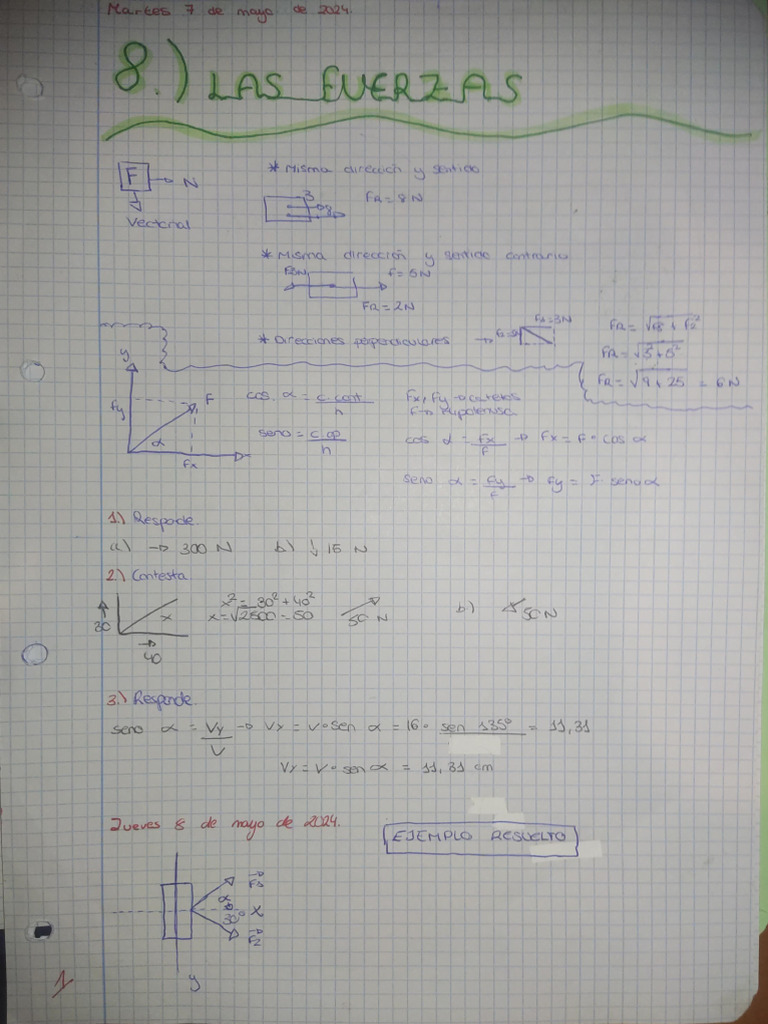 Martes 7 de mayo de 2024.
8.) LAS FUERZAS
F → N
Vectorial
* Misma dirección y sentido
3
8
FR = 8 N
* Misma dirección y sentido contrario
f = 5N
FR = 2N
* Direcciones perpendiculares →
F1 = 3N
FR = √9 + 25 = 6 N
y
Fy
F
α
Fx
cos α = c. cont / h
seno = c op / h
Fx, Fy → catetos
F → hipotenusa
cos α = Fx / F → Fx = F · cos α
seno α = Fy / F → Fy = F · seno α
1.) Responde.
a) → 300 N b) ↓ 15 N
2.) Contesta
30
x
→ 40
x² = 30² + 40²
x = √2500 = 50
50 N
b) 50 N
3.) Responde.
seno α = Vy / V → Vx = V · sen α = 16 · sen 135° = 11,31
Vy = V · sen α = 11,31 cm
Jueves 8 de mayo de 2024.
EJEMPLO RESUELTO
F1
α
30° X
F2
y
1